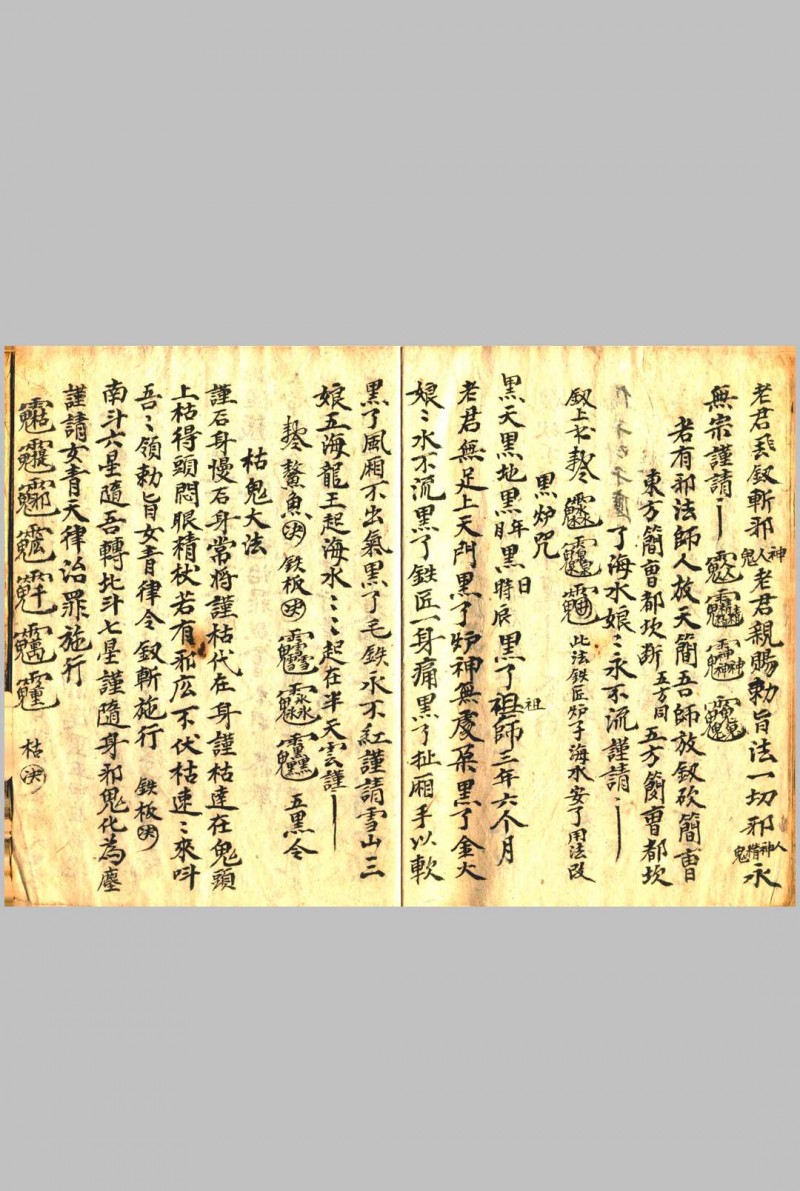 老君丢釼斬邪鬼人神老君親賜勅旨法一切邪鬼精神人永
無宗謹請
若有邪法師人放天簡吾師放釼砍簡曺
東方簡曺都坎断五方同五方簡曺都坎
了海水娘〻永不流謹請
釼上书 此法鉄匠炉子海水安了用法改
黑炉咒
黑天黑地黑年黑月黑日黑時辰黑了祖師三年六个月
老君無足上天門黑了炉神無處朶黑了金火
娘〻水不流黑了鉄匠一身痛黑了扯廂手以軟
黑了風廂不出氣黑了毛鉄永不紅謹請雪山三
娘五海龍王起海水〻〻起在半天雲謹
鰲魚決 鉄板決 五黑令
枯鬼大法
謹石身慢石身常将謹枯代在身謹枯達在鬼頭
上枯得頭悶眼精杖若有邪広不伏枯速〻來叫
吾〻領勅旨女青律令釼斬施行 鉄板決
南斗六星隨吾轉北斗七星謹隨身邪鬼化為塵
謹請女青天律治罪施行
枯決